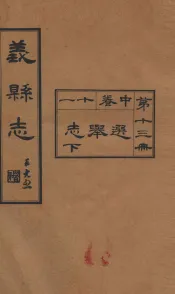 第十三冊
中卷十一
選舉志下
義縣志